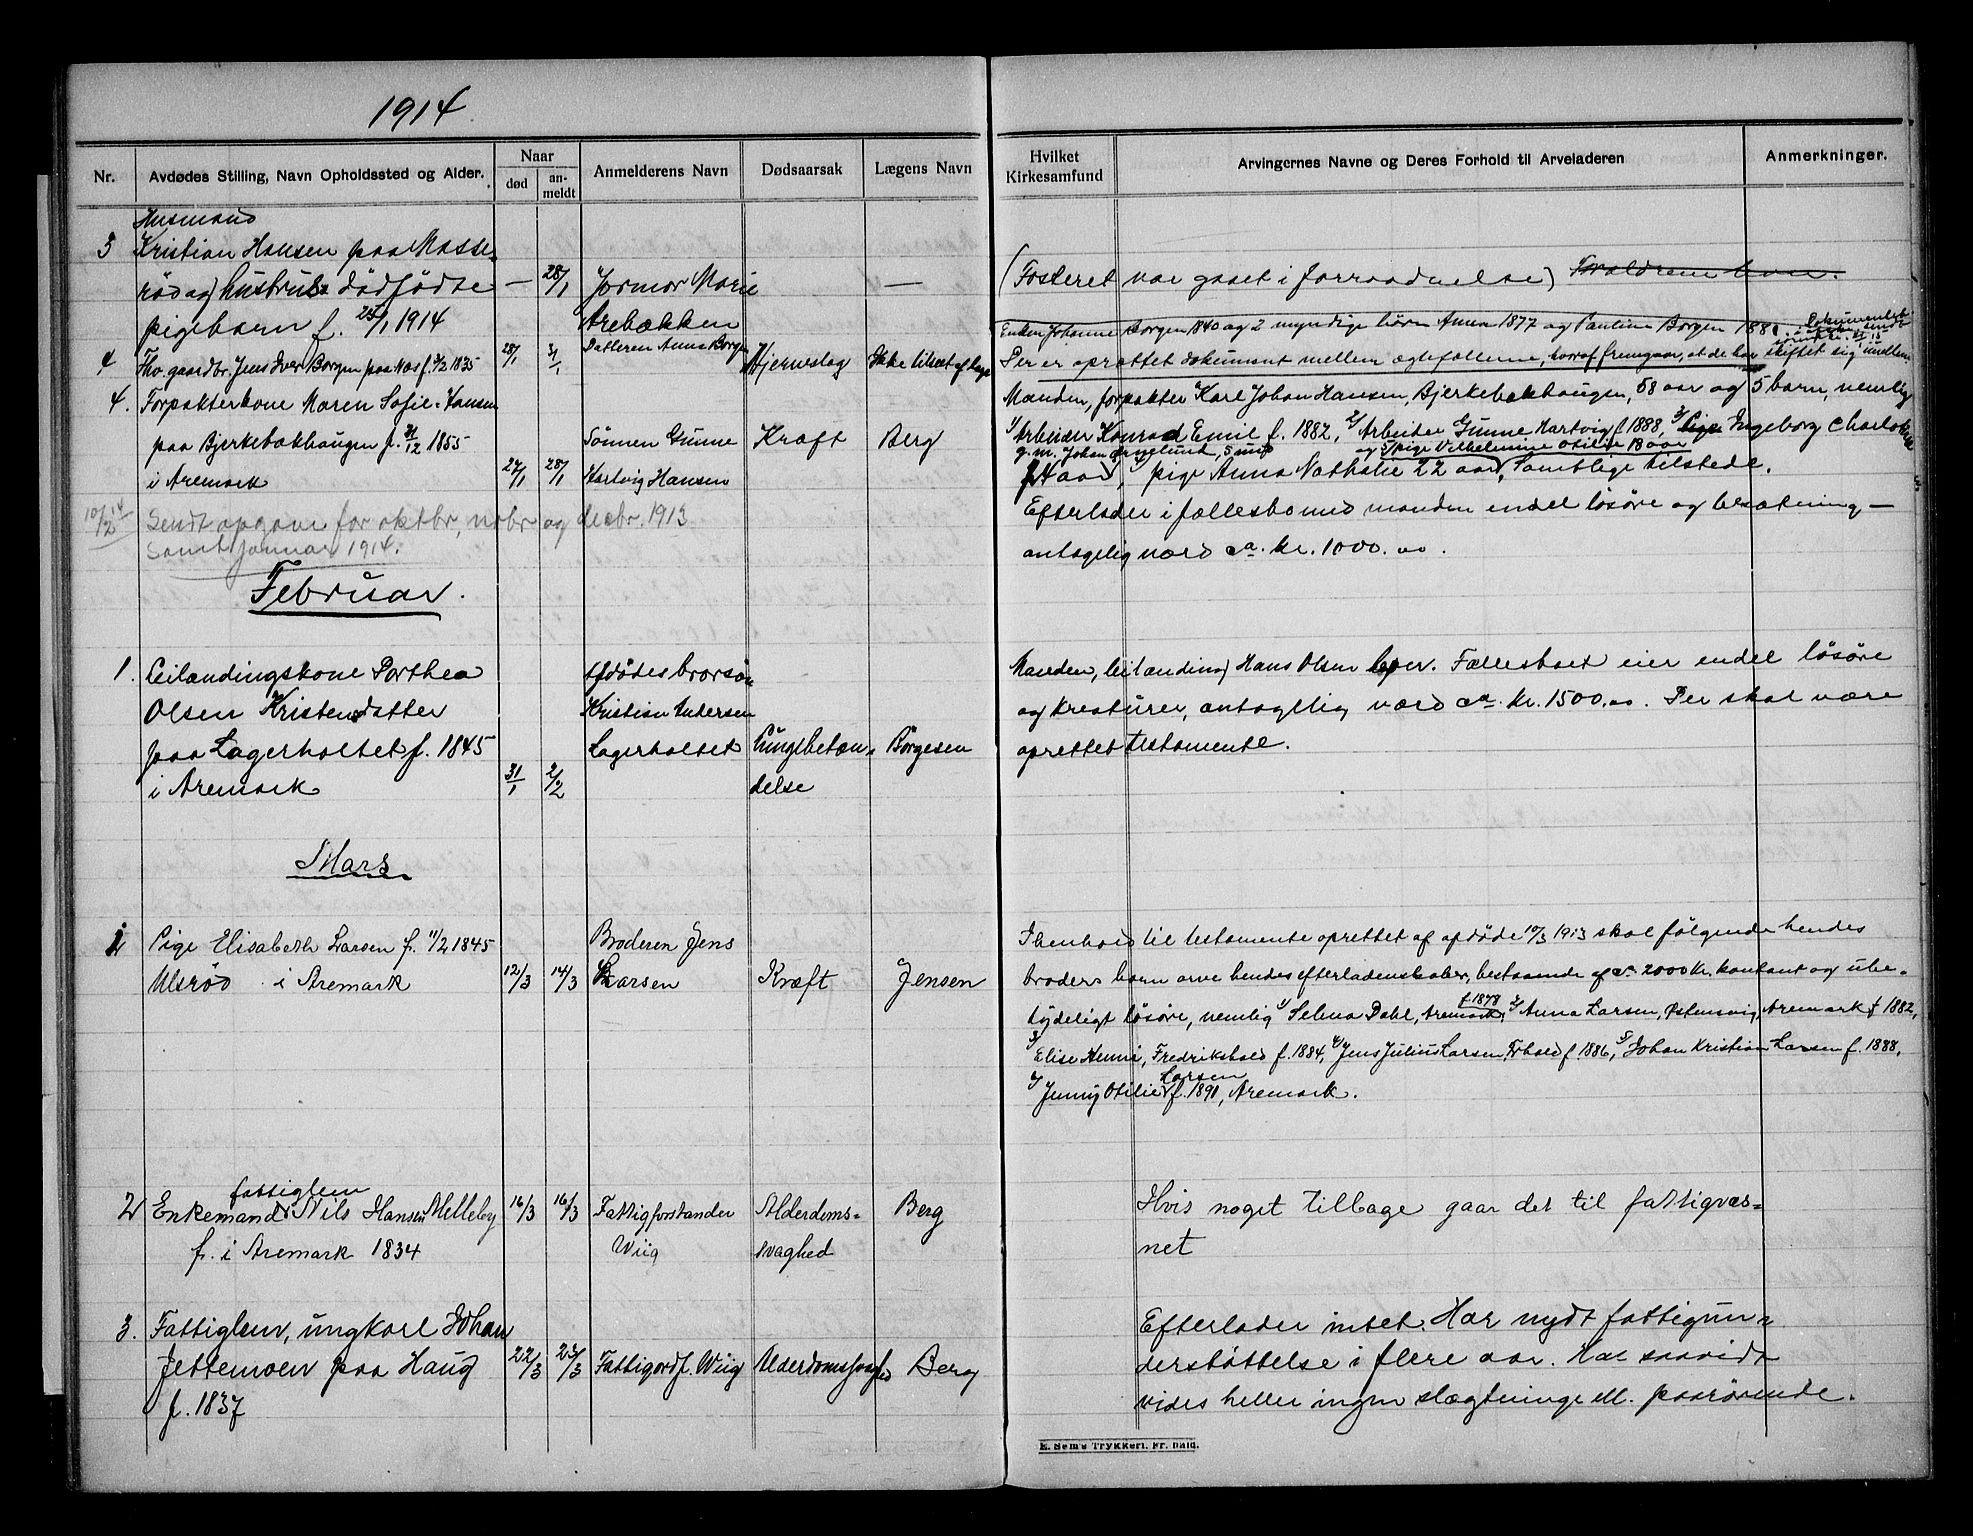 1914
Nr.
Avdødes Stilling, Navn Opholdssted og Alder.
Naar
død
an-
meldt
Anmelderens Navn
Dødsaarsak
Lægens Navn
Hvilket
Kirkesamfund
Arvingernes Navne og Deres Forhold til Arveladeren
Anmerkninger.
Husmand
3 Kristian Hansen paa Masse-
rød og hustrus dødfødte
pigebarn f. 25/1 1914
— 28/1
Jormor Marie
Arebækken
—
(Fosteret var gaaet i forraadnelse) Foraldrene lever.
4 Fhv. gaardbr. Jens Iver Borgen paa Nes f. 3/2 1835
28/1 31/1
Datteren Anna Borgen
Hjerneslag
Ikke tilseet af læge
Enken Johanne Borgen 1840 og 2 myndige börn Anna 1877 og Pauline Borgen 188
Der er oprettet dokument mellem ægtefællerne, hvoraf fremgaar, at de har skiftet sig imellem
4. Forpakterkone Maren Sofie Hansen
paa Bjerkebakhaugen f. 31/12 1855
i Aremark
27/1 28/1
Sönnen Gunne
Hartvig Hansen
Kræft
Berg
Manden, forpakter Karl Johan Hansen, Bjerkebakhaugen, 58 aar og 5 barn, nemlig
1/ Arbeider Konrad Emil f. 1882, 2/ Arbeider Gunne Hartvig f. 1888, 3/ Pige Ingeborg Charlotte
g. m. Johan og 5/ pige Vilhelmine Otilie 18 aar
aar, 4/ pige Anna Nathalie 22 aar, Samtlige tilstede.
Efterlader i fællesbo med manden endel lösöre og besætning —
antagelig værd ca. kr. 1000.00.
10/2 14 Sendt opgave for oktbr, novbr og decbr. 1913
samt januar 1914.
Februar.
1. Leilændingskone Dorthea
Olsen Kristensdatter
paa Lagerholtet f. 1845
i Aremark
31/1 2/2
Afdödes brorsön
Kristian Andersen
Lagerholtet
Lungebetæn-
delse
Börgesen
Manden, leilænding Hans Olsen lever. Fællesboet eier endel lösöre
og kreaturer, antagelig værd ca. kr. 1500.00. Der skal være
oprettet testamente.
Mars
1 Pige Elisabeth Larsen f. 11/2 1845
Ulsröd i Aremark
12/3 14/3
Broderen Jens
Larsen
Kræft
Jensen
I henhold til testamente oprettet af afdöde 10/3 1913 skal følgende hendes
broders barn arve hendes efterladenskaber, bestaaende af ca. 2000 kr. kontant og ube-
tydeligt lösöre, nemlig 1/ Selma Dahl, Aremark, f. 1878 2/ Anna Larsen, Östensvig, Aremark f. 1882,
3/ Elise Henni, Fredrikshald f. 1884, 4/ Jens Julius Larsen, Frhald f. 1886, 5/ Johan Kristian Larsen f. 1888,
6/ Jenny Otilie Larsen f. 1891, Aremark.
fattiglem
2 Enkemand Nils Hansen Melleby
f. i Aremark 1834
16/3 16/3
Fattigforstander
Wiig
Alderdoms-
svaghed
Berg
Hvis noget tilbage gaar det til fattigvæs-
net
3. Fattiglem, ungkarl Johan
Jettemoen paa Haug
f. 1837
22/3 23/3
Fattigordf. Wiig
Alderdomssvaghed
Berg
Efterlader intet. Har nydt fattigun-
derstöttelse i flere aar. Har saavidt
vides heller ingen slægtninge ell. paarörende.
E. Sem's Trykkeri. Fr.hald.